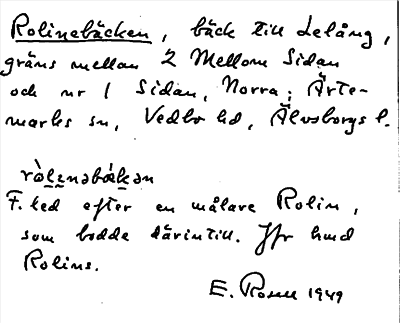 Rolinebäcken, bäck till Lelång,
gräns mellan 2 Mellom Sidan
och nr 1 Sidan, Norra; Ärte-
marks sn, Vedbo hd, Älvsborgs l.
F. led efter en målare Rolin,
som bodde därintill. Jfr hmd
Rolins.
E. Rosell 1949